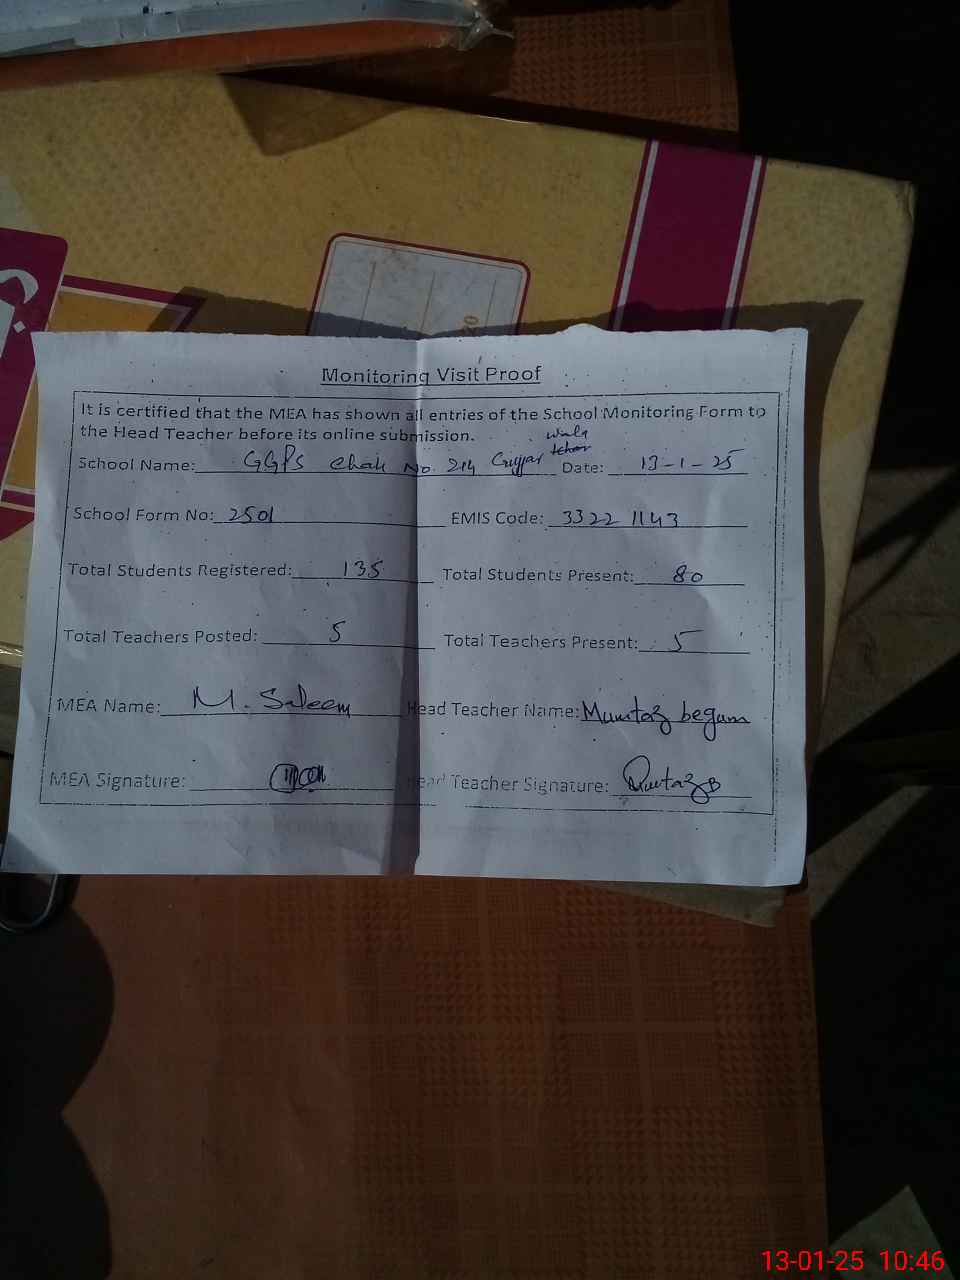 Monitoring Visit Proof
It is certified that the MEA has shown all entries of the School Monitoring Form to
the Head Teacher before its online submission.
School Name: GGPS Chak No. 214 Gujjar wala Date: 13-1-25
School Form No: 2501 EMIS Code: 33221143
Total Students Registered: 135 Total Students Present: 80
Total Teachers Posted: 5 Total Teachers Present: 5
MEA Name: M. Saleem Head Teacher Name: Mumtaz begum
MEA Signature: Head Teacher Signature: Mumtaz B
13-01-25 10:46